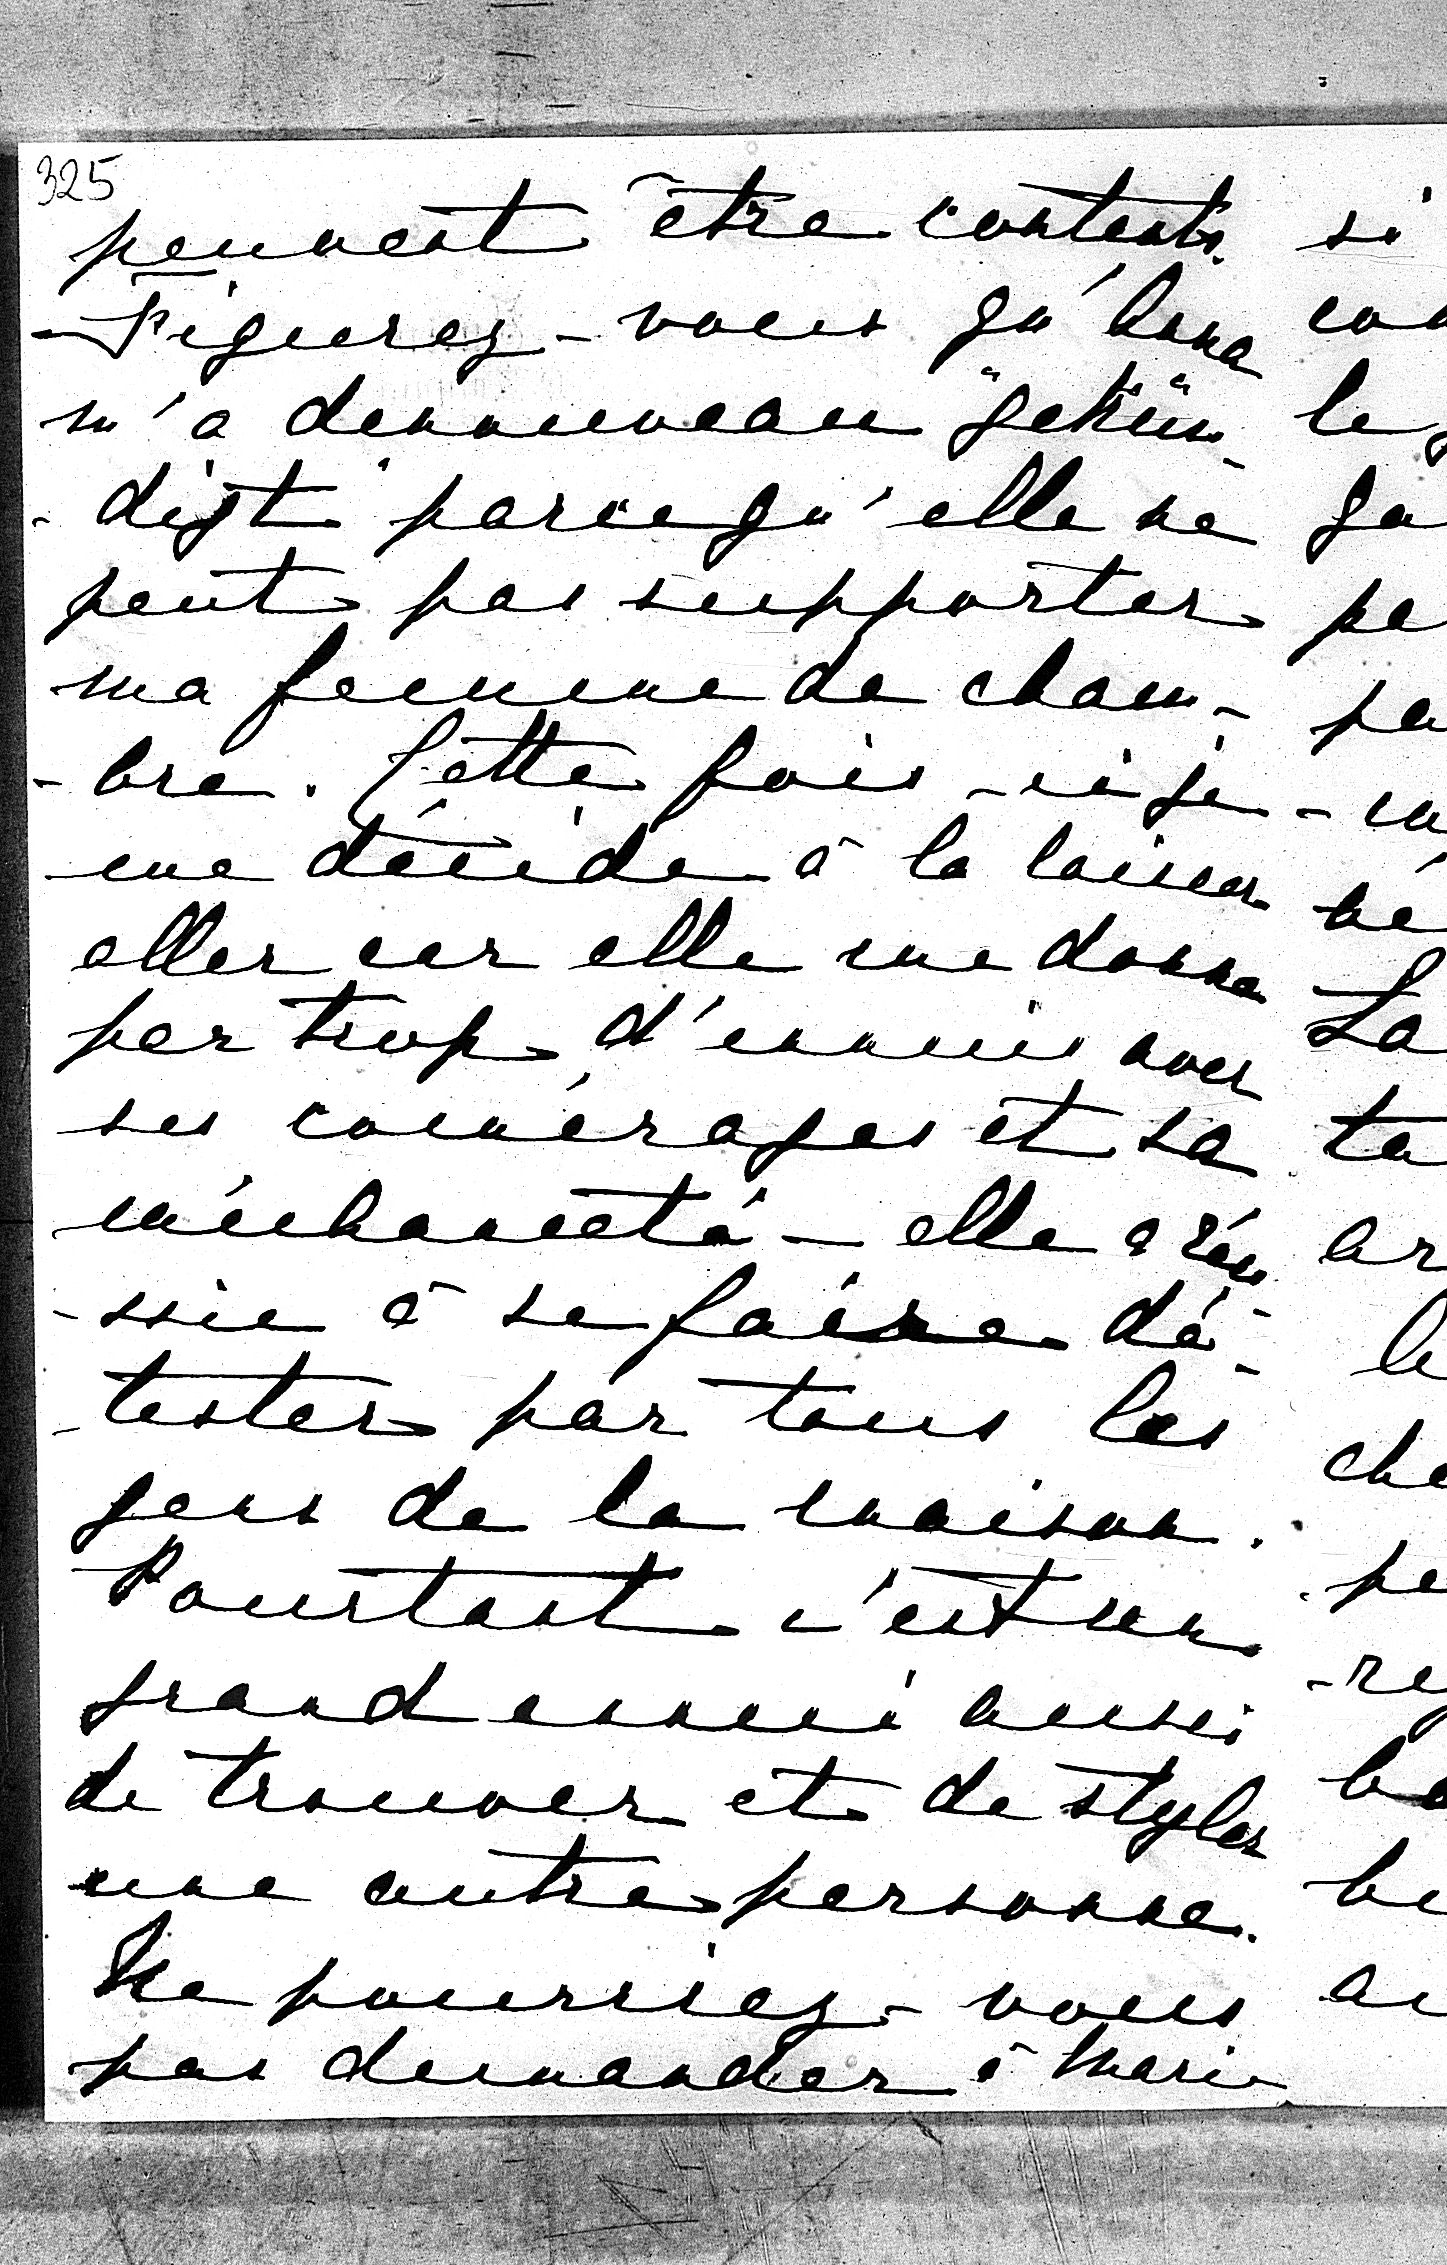 325
peuvent être contents.
Figurez-vous qu'Anna
m'a denouveau "gekün-
-digt" parcequ'elle ne
peut pas supporter
ma femme de cham-
-bre. Cette fois-ci je
me décide à la laisser
aller car elle me donne
par trop d'ennuis avec
ses comérages et sa
méchanceté - elle a réu-
-ssie à se faire dé-
-tester par tous les
gens de la maison.
Pourtant c'est un
grand ennui aussi
de trouver et de styler
une autre personne.
Ne pourriez-vous
pas demander à Marie